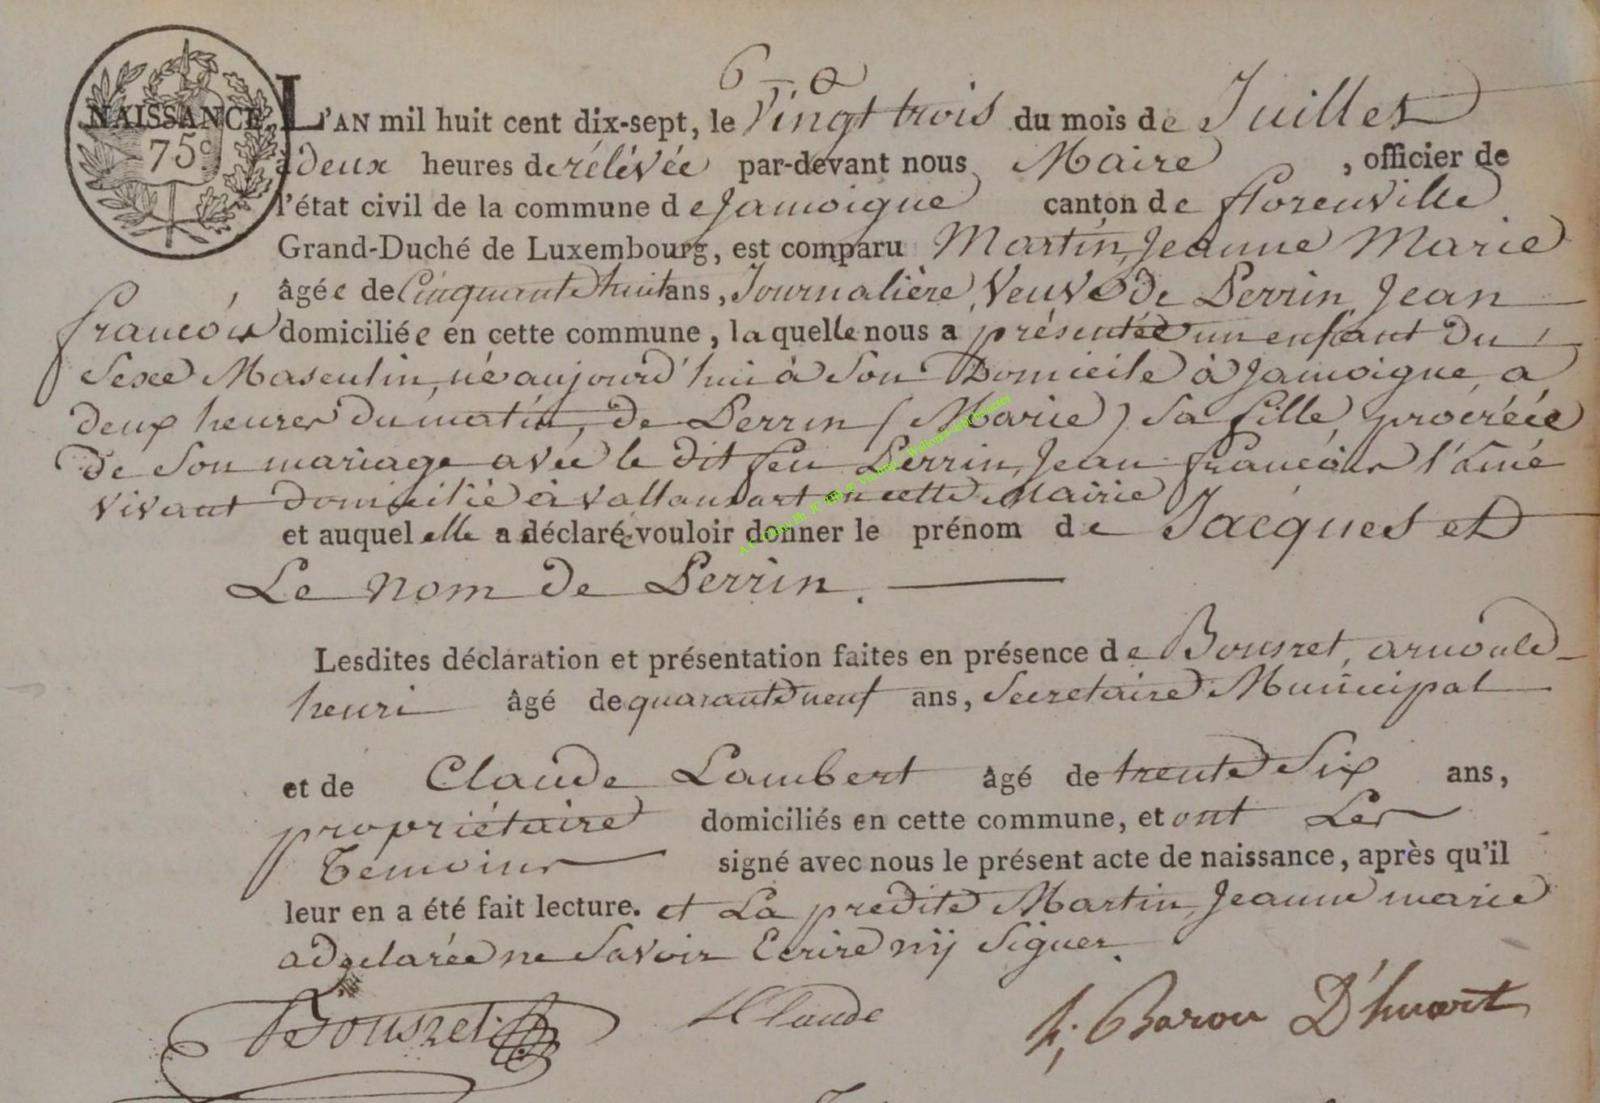 NAISSANCE.
75c
L'AN mil huit cent dix-sept, le Vingt trois du mois de Juillet
à deux heures de rélévée par-devant nous Maire , officier de
l'état civil de la commune de Jamoigne canton de florenville
Grand-Duché de Luxembourg, est comparu Martin, Jeanne Marie
âgée de Cinquante huit ans, Journalière, Veuve de Perrin, Jean
francóis domiciliée en cette commune, la quelle nous a présentée un enfant du
Sexe Masculin, né aujourd'hui à Son Domicile à Jamoigne, a
deux heures du matin, de Perrin (Marie) Sa fille, procréée
de Son mariage avéc le dit feu Perrin, Jean francóis l'ainé
vivant domicilié à vallansart en cette Mairie
et auquel elle a déclarée vouloir donner le prénom de Jacques et
Le nom de Perrin.
Lesdites déclaration et présentation faites en présence de Bousret, arnould
henri âgé de quarante neuf ans, Secretaire Municipal
et de Claude Lambert âgé de trente Six ans,
propriétaire domiciliés en cette commune, et ont Les
Temoins signé avec nous le présent acte de naissance, après qu'il
leur en a été fait lecture. et La predite Martin, Jeanne marie
a declarée ne Savoir Ecrire nij Signer.
Bousret LClaude h; Baron D'huart